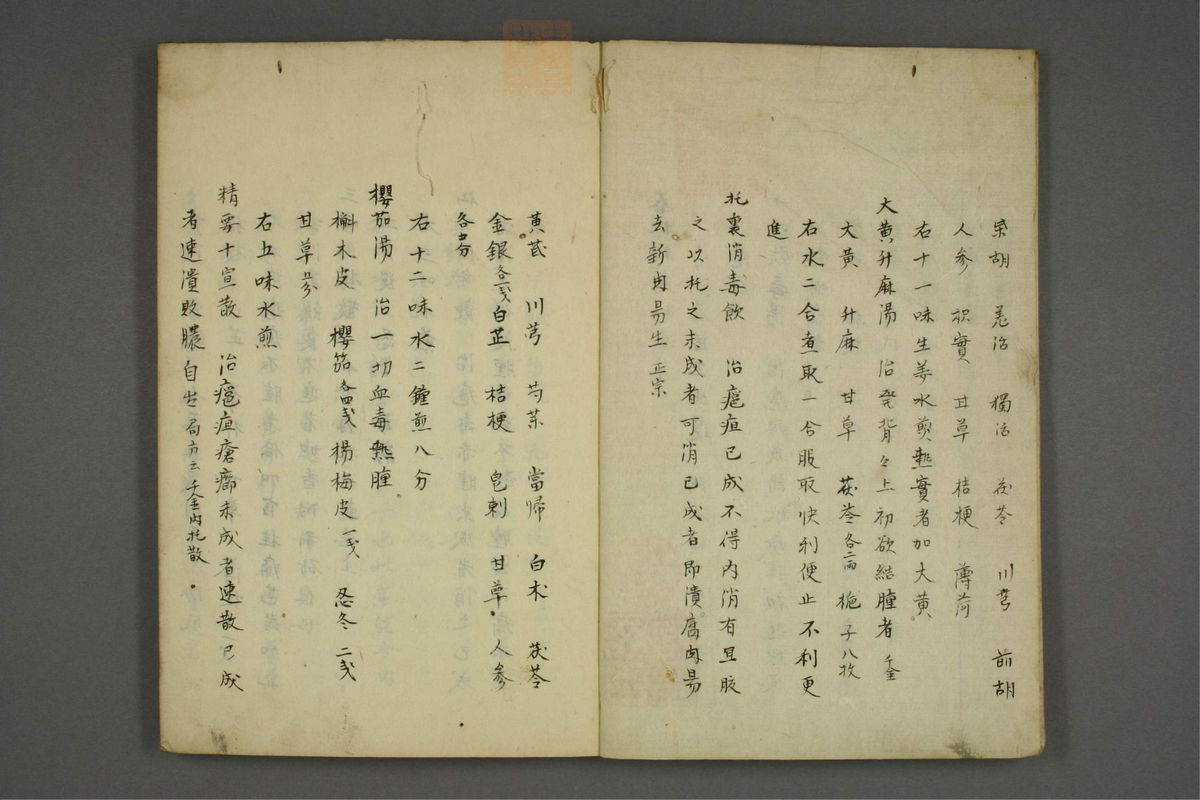 柴胡 羌活 獨活 茯苓 川芎 前胡
人参 枳實 甘草 桔梗 薄荷
右十一味生姜水煎熱實者加大黄
大黄升麻湯 治発背々上初欲結腫者 千金
大黄 升麻 甘草 茯苓各二両 梔子八枚
右水二合煮取一合服取快利便止不利更
進
托裏消毒飲 治瘡疽已成不得内消有且服
之以托之未成者可消已成者即潰腐肉易
去新肉易生 正宗
黄芪 川芎 芍薬 當帰 白术 茯苓
金銀各二戔 白芷 桔梗 皂刺 甘草 人参
各五分
右十二味水二鐘煎八分
櫻茄湯 治一切血毒熱腫
槲木皮 櫻茄各四戔 楊梅皮一戔 忍冬二戔
甘草五分
右五味水煎
精要十宣散 治瘡疽瘡癤未成者速散已成
者速潰敗膿自出局方云千金内托散